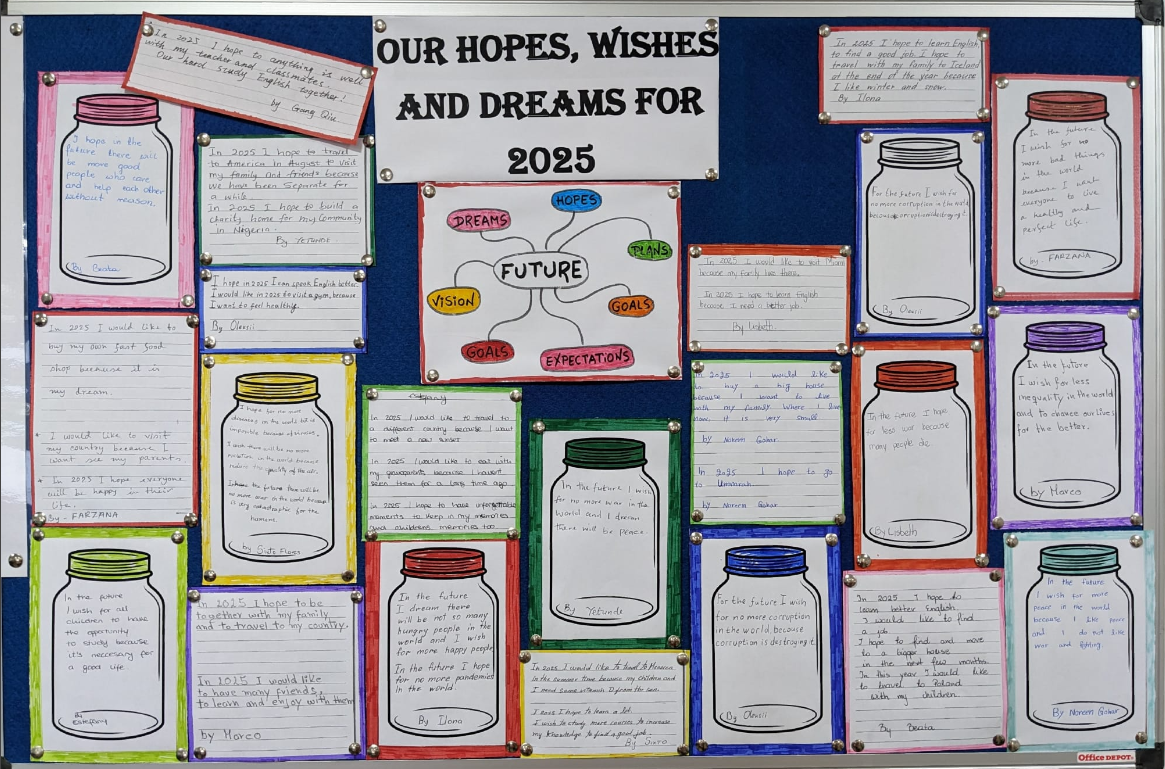 OUR HOPES, WISHES
AND DREAMS FOR
2025
In 2025 I hope to anything is well
with my teacher and classmate!
Our hard study English together!
by Gang Qiu
I hope in the
future there will
be more good
people who care
and help each other
without reason.
By Beata
In 2025 I hope to travel
to America in August to visit
my family and friends because
we have been Separate for
a while
In 2025 I hope to build a
charity home for my Community
in Nigeria.
By YETUNDE
I hope in 2025 I can speak English better.
I would like in 2025 to visit a gym, because
I want to feel healthy.
By Olesii
HOPES
DREAMS
PLANS
FUTURE
VISION
GOALS
GOALS
EXPECTATIONS
In 2025 I hope to learn English
to find a good job. I hope to
travel with my family to Iceland
at the end of the year because
I like winter and snow.
By Ilona
For the future I wish for
no more corruption in the world
because corruption destroying it.
By Olesii
In the future
I wish for no
more bad things
in the world
because I want
everyone to live
a healthy and
perfect life.
by. FARZANA
In 2025 I would like to visit
because my family live there.
In 2025 I hope to learn English
because I need a better job
By Lisbeth
In 2025 I would like to
buy my own fast good
shop because it is
my dream.
I would like to visit
my country because I
want see my parents.
In 2025 I hope everyone
will be happy in their
life.
By - FARZANA
I hope for no more
on the world but is
impossible because of
I wish there will be no more
in the world because
reduce the quality of the air.
In the future there will be
no more in the world because
is very catastrophic for the
by Sixto Flores
In 2025 I would like to travel to
a different country because I want
to meet a new
In 2025 I would like to eat with
my grandparents because I haven't
seen them for a long time ago
In 2025 I hope to have unforgettable
moments to keep in my memories
and childrens memories too
In the future I wish
for no more war in the
world and I dream
there will be peace.
By Yetunde
In 2025 I would like
to buy a big house
because I want to live
with my family Where I live
now it is very small
by Noreen Gohar
In 2025 I hope to go
to Ummrah
by Noreen Gohar
In the future I hope
for less war because
many people die.
By Lisbeth
In the future
I wish for less
inequality in the world
and to chance our lives
for the better.
by Marco
In the future
I wish for all
children to have
the opportunity
to study because
it's necessary for
a good life.
By
In 2025 I hope to be
together with my family
and to travel to my country.
In 2025 I would like
to have many friends,
to learn and enjoy with them
by Marco
In the future
I dream there
will be not so many
hungry people in the
world and I wish
for more happy people
In the future I hope
for no more pandemics
in the world.
By Ilona
In 2025 I would like to travel to
in the summer time because my children and
I need some vitamin D from the sun.
I 2025 I hope to learn a lot.
I wish to study more courses to increase
my knowledge to find a good job.
By Sixto
For the future I wish
for no more corruption
in the world, because
corruption is destroying it.
By Olesii
In 2025 I hope to
learn better English.
I would like to find
a job.
I hope to find and move
to a bigger house
in the next few months.
In this year I would like
to travel to Poland
with my children.
By Beata
In the future
I wish for more
peace in the world
because I like peace
and I do not like
war and fighting.
By Noreen Gohar
Office DEPOT